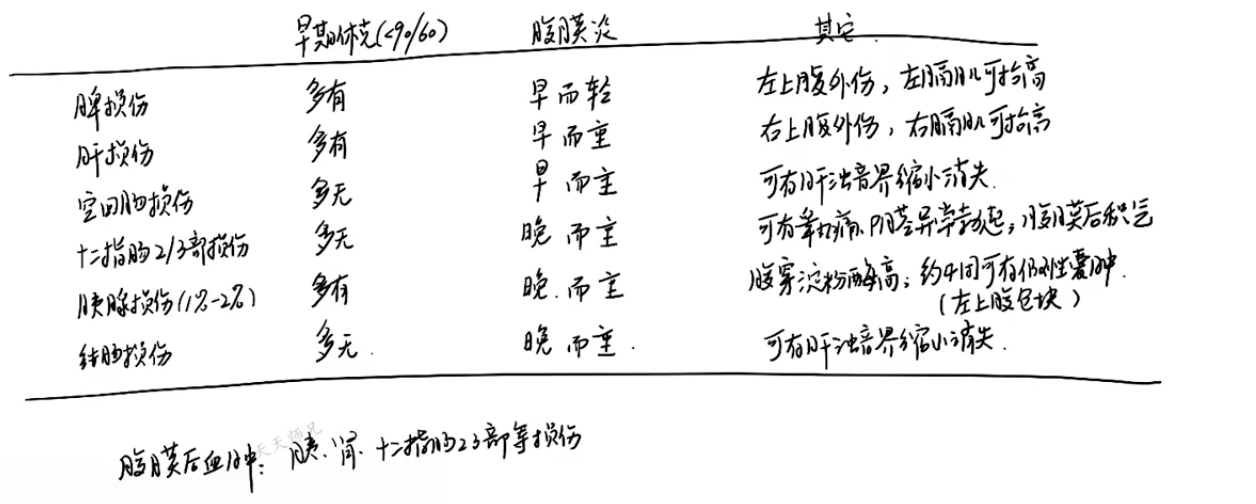 早期休克(<90/60) 腹膜炎 其它
脾损伤 多有 早而轻 左上腹外伤，左膈肌可抬高
肝损伤 多有 早而重 右上腹外伤，右膈肌可抬高
空回肠损伤 多无 早而重 可有肝浊音界缩小消失.
十二指肠2/3部损伤 多无 晚而重 可有睾丸痛.阴茎异常勃起；腹膜后积气
胰腺损伤(1%-2%) 多有 晚.而重 腹穿淀粉酶高；约4周可有假性囊肿.
(左上腹包块)
结肠损伤 多无. 晚而重. 可有肝浊音界缩小消失.
天天师兄
腹膜后血肿：胰.肾.十二指肠23部等损伤